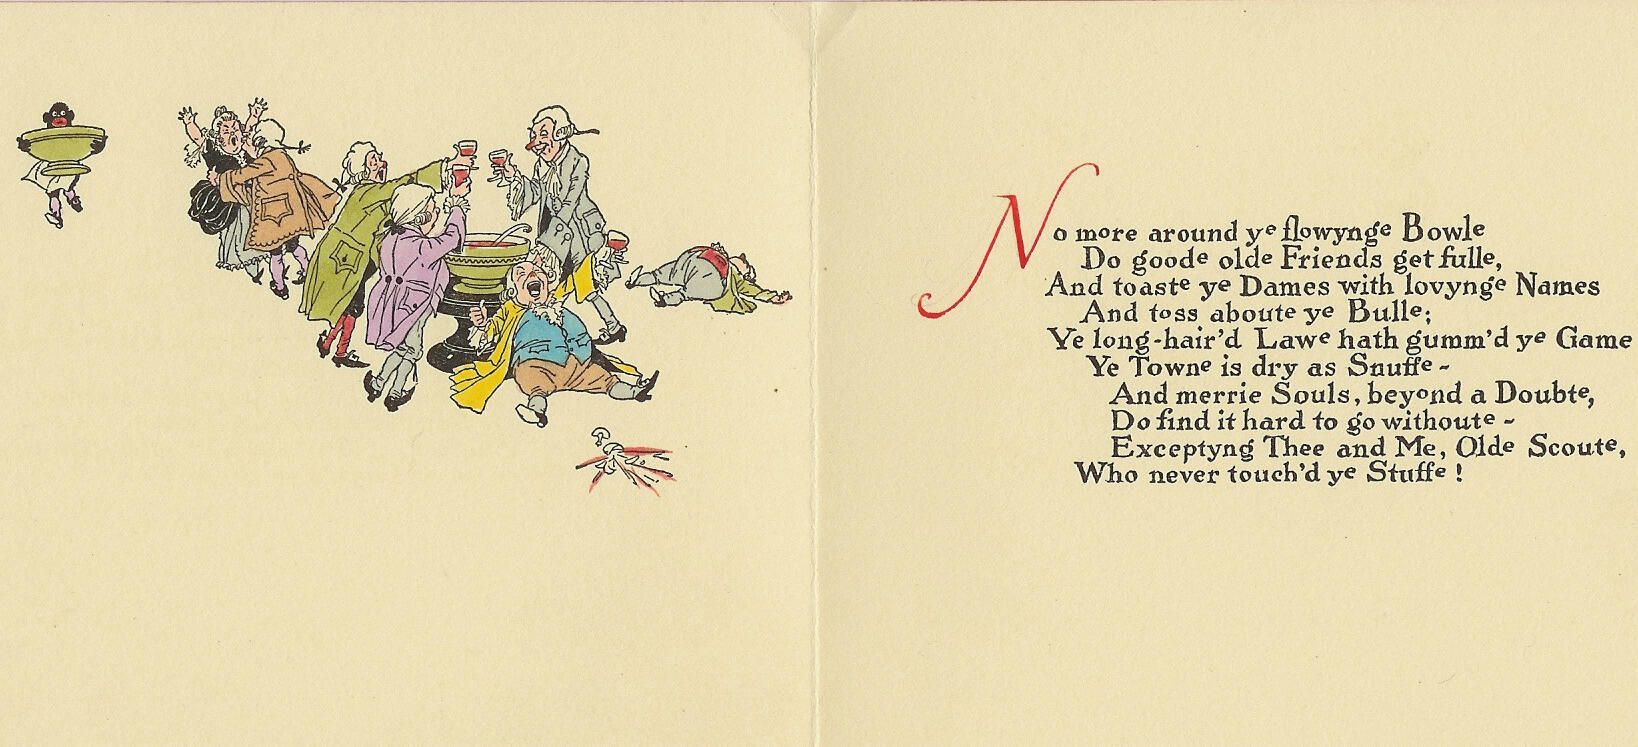 No more around ye flowynge Bowle
Do goode olde Friends get fulle,
And toaste ye Dames with lovynge Names
And toss aboute ye Bulle;
Ye long-hair'd Lawe hath gumm'd ye Game
Ye Towne is dry as Snuffe -
And merrie Souls, beyond a Doubte,
Do find it hard to go withoute -
Exceptyng Thee and Me, Olde Scoute,
Who never touch'd ye Stuffe!